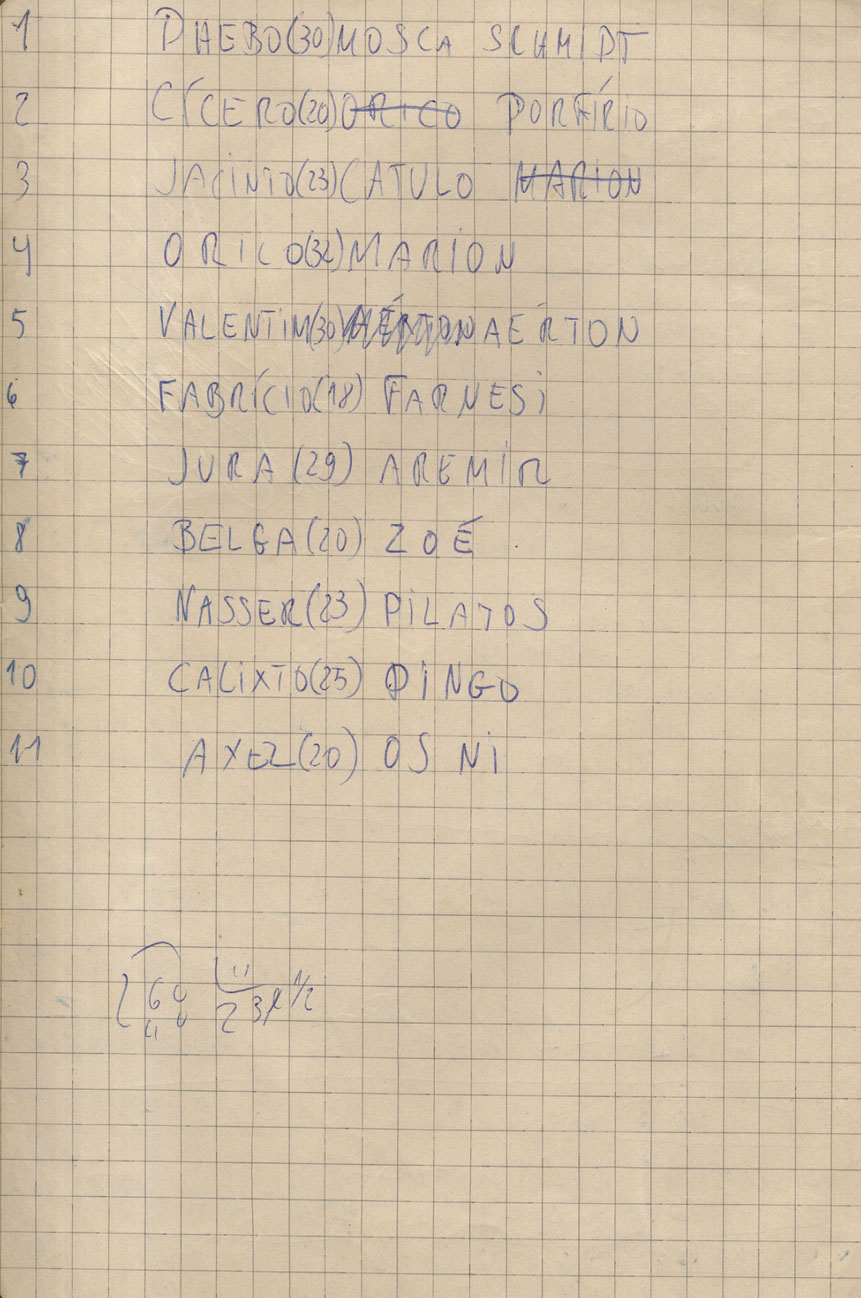 1 PHAEBO(30)MOSCA SCHMIDT
2 CÍCERO(20)ORICO PORFÍRIO
3 JACINTO(23)CATULO MARION
4 ORICO(32)MARION
5 VALENTIM(30)AÉRTON AÉRTON
6 FABRÍCIO(18) FARNESI
7 JURA(29) AREMIR
8 BELGA(20) ZOÉ
9 NASSER(23) PILATOS
10 CALIXTO(25) DINGO
11 AXEL(20) OSNI